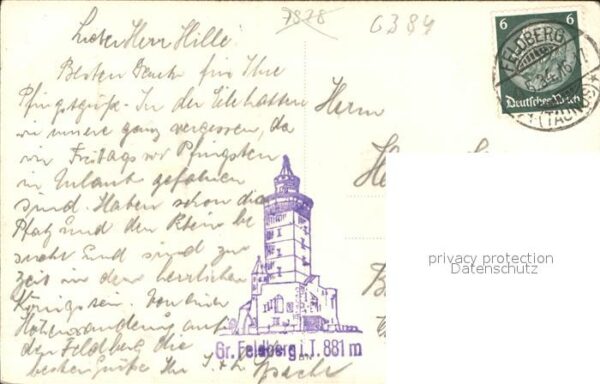 7878
6384
Lieber Herr Hille!
Besten Dank für Ihre
Pfingstgrüße. In der Eile hatten
wir unsere ganz vergessen, da
wir Freitags vor Pfingsten
in Urlaub gefahren
sind. Haben schon die
Pfalz und den Rhein be
sucht und sind zur
Zeit in dem herrlichen
Königstein. Von einer
Höhenwanderung auf
den Feldberg die
besten Grüße Ihr
Herrn
6 6
Deutsches Reich
FELDBERG
(TAUNUS)
privacy protection
Datenschutz
Gr. Feldberg i. T. 881 m